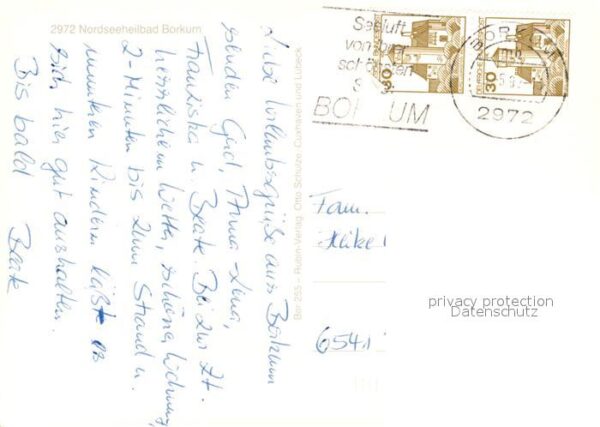 2972 Nordseeheilbad Borkum
Liebe Urlaubsgrüße aus Borkum
senden Gerd, Anna-Lena,
Franziska u. Beate. Bei zur Zt.
herrlichem Wetter, schöne Wohnung,
2-Minuten bis zum Strand u.
munteren Kindern läßt es
sich hier gut aushalten.
Bis bald Beate
Ber 255 – Ruten-Verlag Otto Schütze Cuxhaven und Lübeck
Seeluft
von
schönsten
BORKUM
2972
30
Fam.
6541
privacy protection
Datenschutz